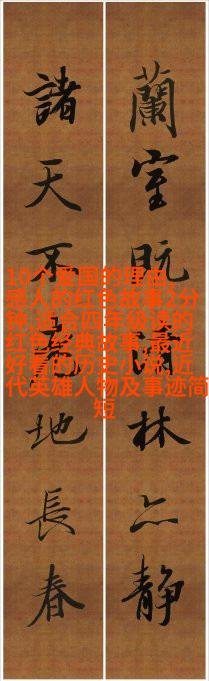 蘭室既林亦静
諸天不地長春
10个爱国的理由,
感人的红色故事2分
钟,适合四年级读的
红色经典故事,最近
好看的历史小说,近
代英雄人物及事迹简
短